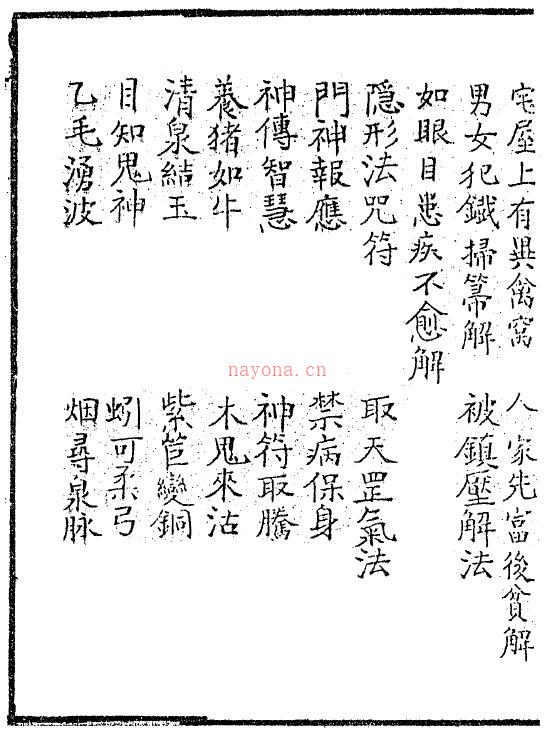 宅屋上有異禽窩 人家先富後貧解
男女犯鐵掃箒解 被鎮壓解法
如眼目患疾不愈解
隱形法咒符 取天罡氣法
門神報應 禁病保身
神傳智慧 神符取騰
養猪如牛 木鬼來沽
清泉結玉 紫笆變銅
目知鬼神 蚓可柔弓
乙毛湧波 烟尋泉脉
nayona.cn